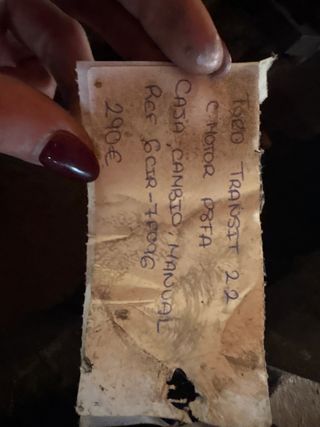 FORD TRANSIT 2.2
C.MOTOR P8FA
CAJA CAMBIO, MANUAL
REF 6C1R-7
290€